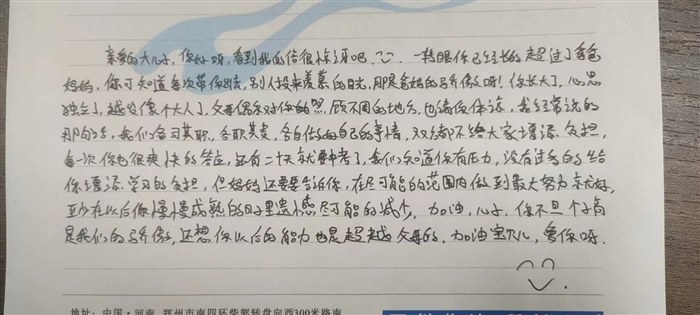 亲爱的大儿子,你好呀,看到我的信很惊讶吧。一转眼你已经长的超过了爸爸
妈妈,你可知道每次带你出去,别人投来羡慕的目光,那是爸妈的骄傲呀!你长大了,心思
独立了,越发像个大人了,父母偶尔对你的照顾不周的地方,也请你体谅,我经常说的
那句话,我们各司其职,各职其责,各自做好自己的事情,双双都不给大家增添负担,
每一次你也很爽快的答应,还有二十天就要中考了,我们知道你有压力,没有过多的给
你增添学习的负担,但妈妈还要告诉你,在尽可能的范围内做到最大努力就好,
至少在以后你慢慢成熟的日子里遗憾尽可能的减少,加油,儿子,你不但个子高
是我们的骄傲,还想你以后的能力也是超越父母的,加油宝贝儿,爱你呀.
地址:中国·河南 郑州市南四环柴郭转盘向西300米路南